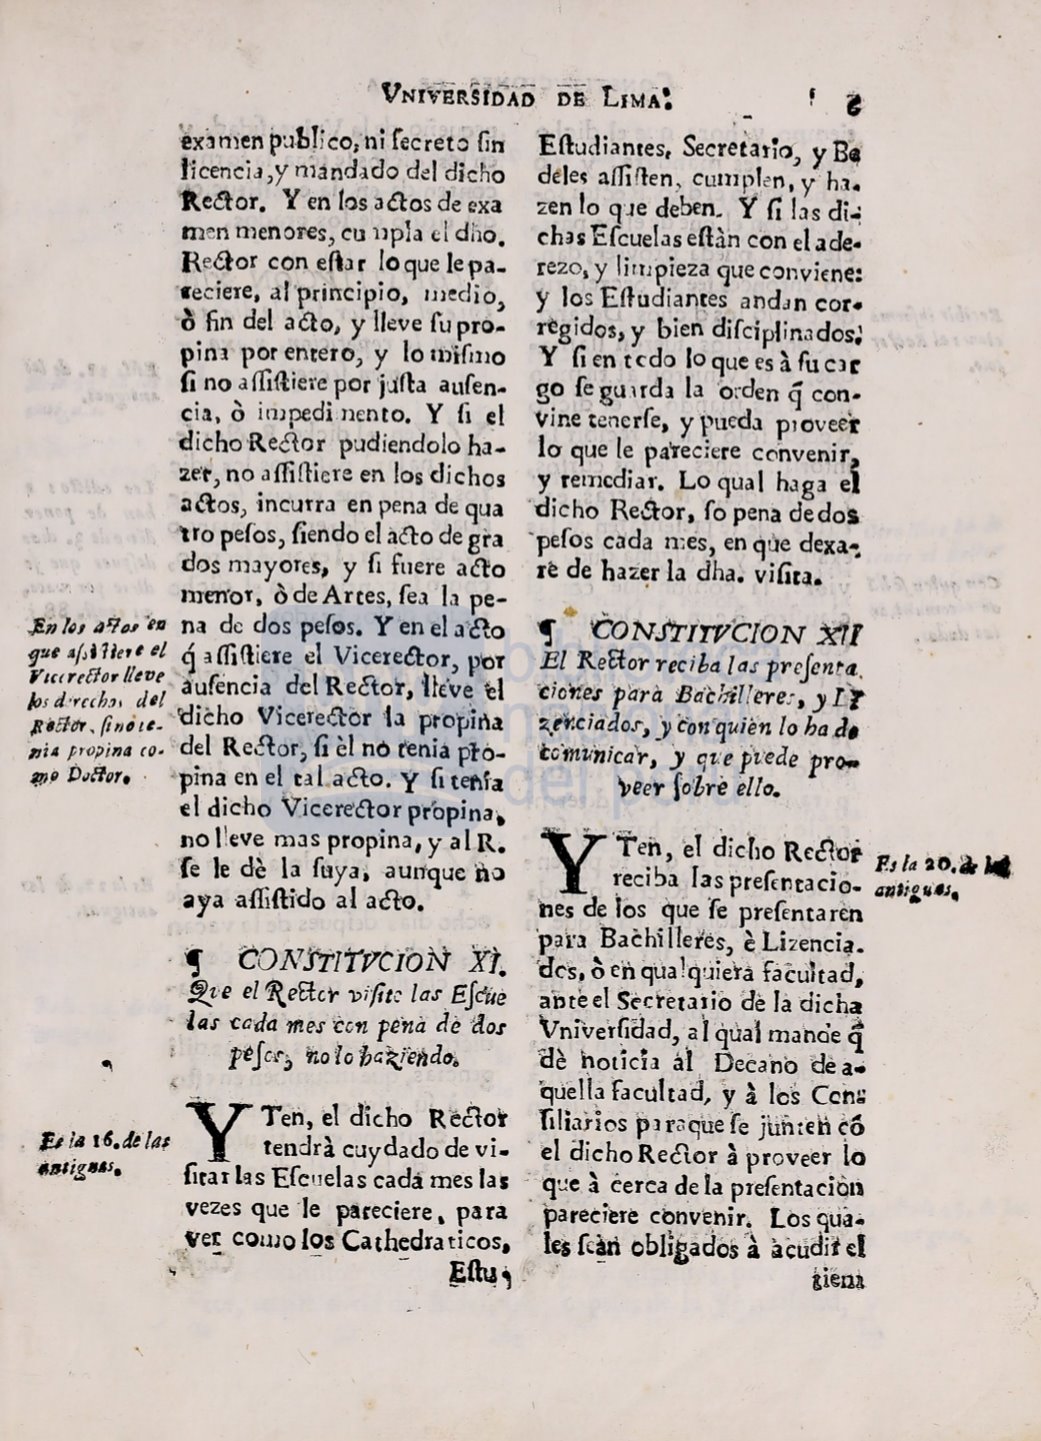 VNIVERSIDAD DE LIMA.
examen publico, ni ſecreto ſin
licencia, y mandado del dicho
Rector. Y en los actos de exa
men menores, cumpla el dho.
Rector con eſtar lo que le pa-
reciere, al principio, medio,
ò fin del acto, y lleve ſu pro-
pina por entero, y lo miſmo
ſi no aſſiſtiere por juſta auſen-
cia, ò impedimento. Y ſi el
dicho Rector pudiendolo ha-
zer, no aſſiſtiere en los dichos
actos, incurra en pena de qua
tro peſos, ſiendo el acto de gra
dos mayores, y ſi fuere acto
menor, ò de Artes, ſea la pe-
na de dos peſos. Y en el acto
q̃ aſſiſtiere el Vicerector, por
auſencia del Rector, lleve el
dicho Vicerector la propina
del Rector, ſi èl no tenia pro-
pina en el tal acto. Y ſi tenia
el dicho Vicerector propina,
no lleve mas propina, y al R.
ſe le dè la ſuya, aunque no
aya aſſiſtido al acto.
En los actos en
que aſſiſtiere el
Vicerector lleve
los derechos del
Rector, ſi no te-
nia propina co-
mo Doctor.
¶ CONSTITVCION XI.
Que el Rector viſite las Eſcue
las cada mes con pena de dos
peſos, no lo haziendo.
YTen, el dicho Rector
tendrà cuydado de vi-
ſitar las Eſcuelas cada mes las
vezes que le pareciere, para
ver como los Cathedraticos,
Eſtu-
Es la 16. de las
antiguas.
Eſtudiantes, Secretario, y Be
deles aſſiſten, cumplen, y ha-
zen lo que deben. Y ſi las di-
chas Eſcuelas eſtàn con el ade-
rezo, y limpieza que conviene:
y los Eſtudiantes andan cor-
regidos, y bien diſciplinados:
Y ſi en todo lo que es à ſu car
go ſe guarda la orden q̃ con-
vine tenerſe, y pueda proveer
lo que le pareciere convenir,
y remediar. Lo qual haga el
dicho Rector, ſo pena de dos
peſos cada mes, en que dexa-
re de hazer la dha. viſita.
¶ CONSTITVCION XII
El Rector reciba las preſenta
ciones para Bachilleres, y Li
zenciados, y con quien lo ha de
comunicar, y que puede pro-
veer ſobre ello.
YTen, el dicho Rector
reciba las preſentacio-
nes de los que ſe preſentaren
para Bachilleres, è Lizencia-
dos, ò en qualquiera facultad,
ante el Secretario de la dicha
Vniverſidad, al qual mande q̃
dè noticia al Decano de a-
quella facultad, y à los Con-
ſiliarios para que ſe junten cõ
el dicho Rector à proveer lo
que à cerca de la preſentacion
pareciere convenir. Los qua-
les ſean obligados à acudir el
tiem
Es la 20. de las
antiguas.
biblioteca
nacional
del perú